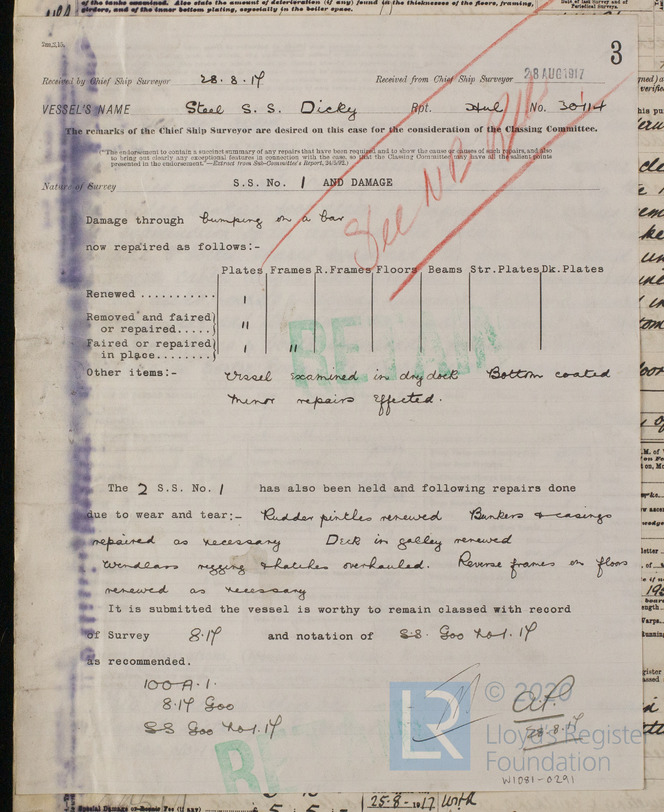 of the tanks examined. Also state the amount of deterioration (if any) found in the thicknesses of the floors, framing,
girders, and of the inner bottom plating, especially in the boiler space.
Date of last Survey and of
Periodical Surveys.
3
Received by Chief Ship Surveyor 28.8.17 Received from Chief Ship Surveyor 28 AUG 1917
VESSEL'S NAME Steel S. S. Dicky Rpt. Hul No. 30114
The remarks of the Chief Ship Surveyor are desired on this case for the consideration of the Classing Committee.
("The endorsement to contain a succinct summary of any repairs that have been required and to show the cause or causes of such repairs, and also
to bring out clearly any exceptional features in connection with the case, so that the Classing Committee may have all the salient points
presented in the endorsement."—Extract from Sub-Committee's Report, 24/5/92.)
See NB
Nature of Survey S.S. No. 1 AND DAMAGE
Damage through bumping on a bar
now repaired as follows:-
Plates Frames R.Frames Floors Beams Str.Plates Dk.Plates
Renewed .......... 1
Removed and faired
or repaired..... 11
Faired or repaired
in place........ 1 11
RETAIN
Other items:- Vessel examined in dry dock Bottom coated
minor repairs effected.
The 2 S.S. No. 1 has also been held and following repairs done
due to wear and tear:- Rudder pintles renewed Bunkers & casings
repaired as necessary Deck in galley renewed
Windlass rigging & hatches overhauled. Reverse frames on floors
renewed as necessary
It is submitted the vessel is worthy to remain classed with record
of Survey 8.17 and notation of S.S. Goo No 1.17
as recommended.
100 A.1.
8.17 Goo
SS Goo No 1.17
28.8.17
RE
LR © 2020
Lloyd's Register
Foundation
W1081-0291
Special Damage or Repair Fee (if any)
5 : 5 :
25-8-1917